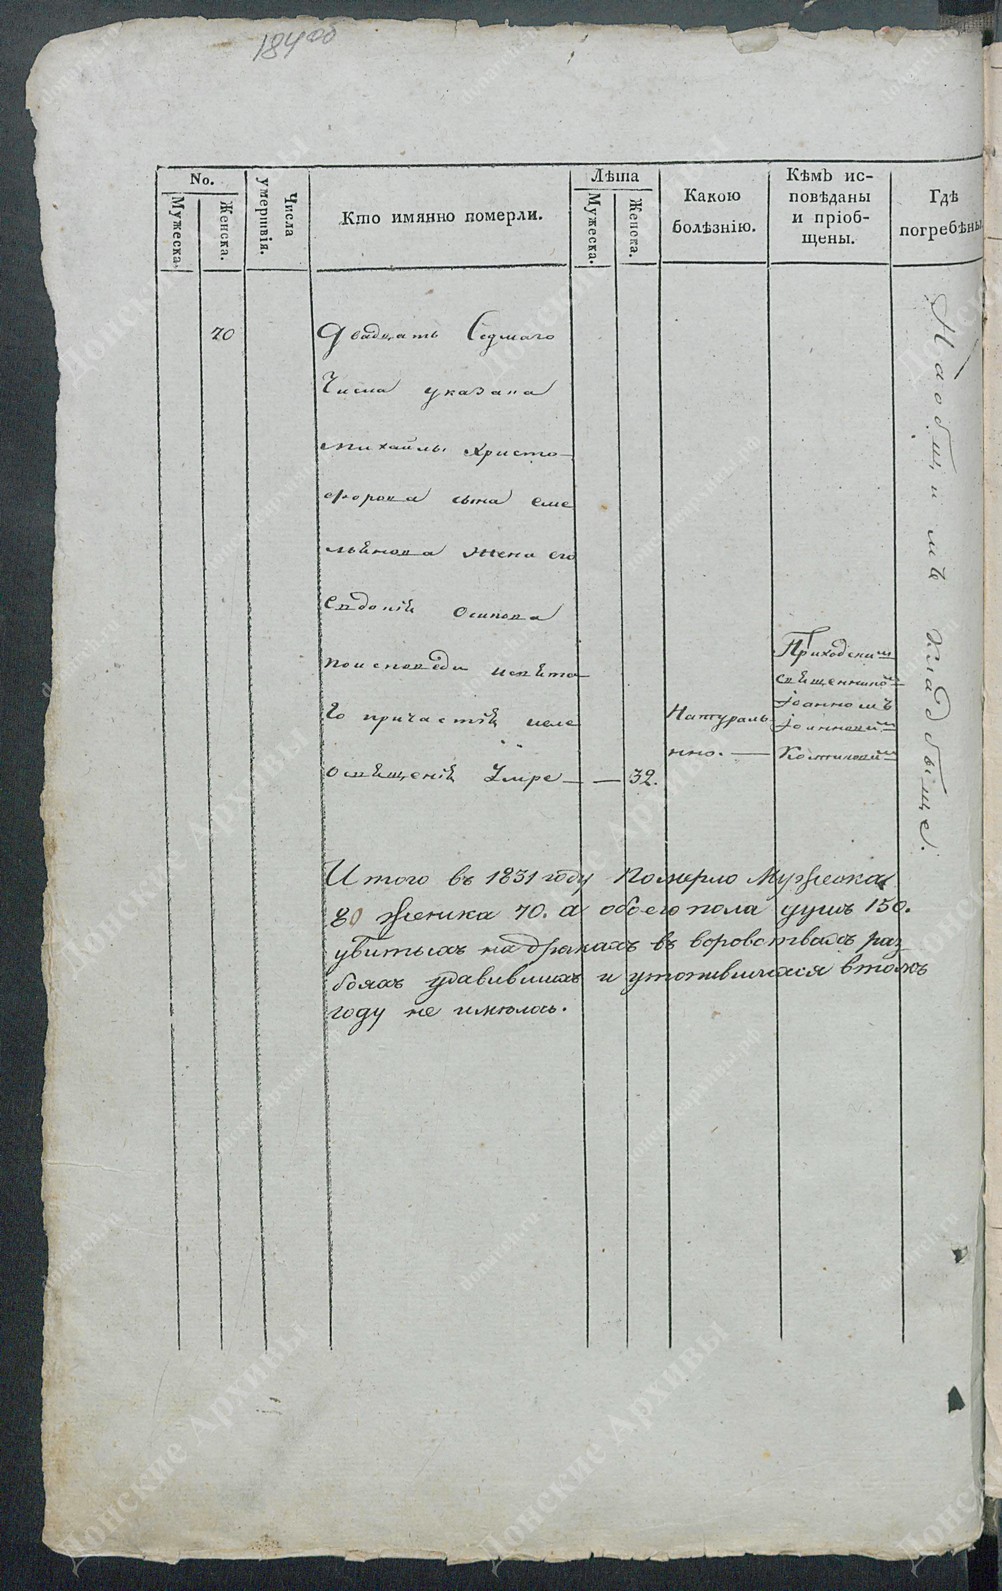 184об
No.
Мужеска.
Женска.
Числа умертвія.
Кто имянно померли.
Лѣта
Мужеска.
Женска.
Какою
болѣзнію.
Кѣмъ ис-
повѣданы
и пріоб-
щены.
Гдѣ
погребѣны.
70
Двадцать Седмаго
Числа указана
михайлы Христо-
форова сына еме
льянова Жена его
Осипова
по исповеди и святы
го причастія и еле
освященія Умре — — 32.
Натураль
нно. —
Приходским
священником
Іоанном
На общимъ кладбыще.
Итого въ 1831 году Померло Мужеска
80 Женска 70. а обоего пола душъ 150.
убитыхъ на дракахъ въ воровствахъ раз
бояхъ удавившихъ и утопившихся в томъ
году не имелось.
Донские Архивы
donarch.ru
донскиеархивы.рф